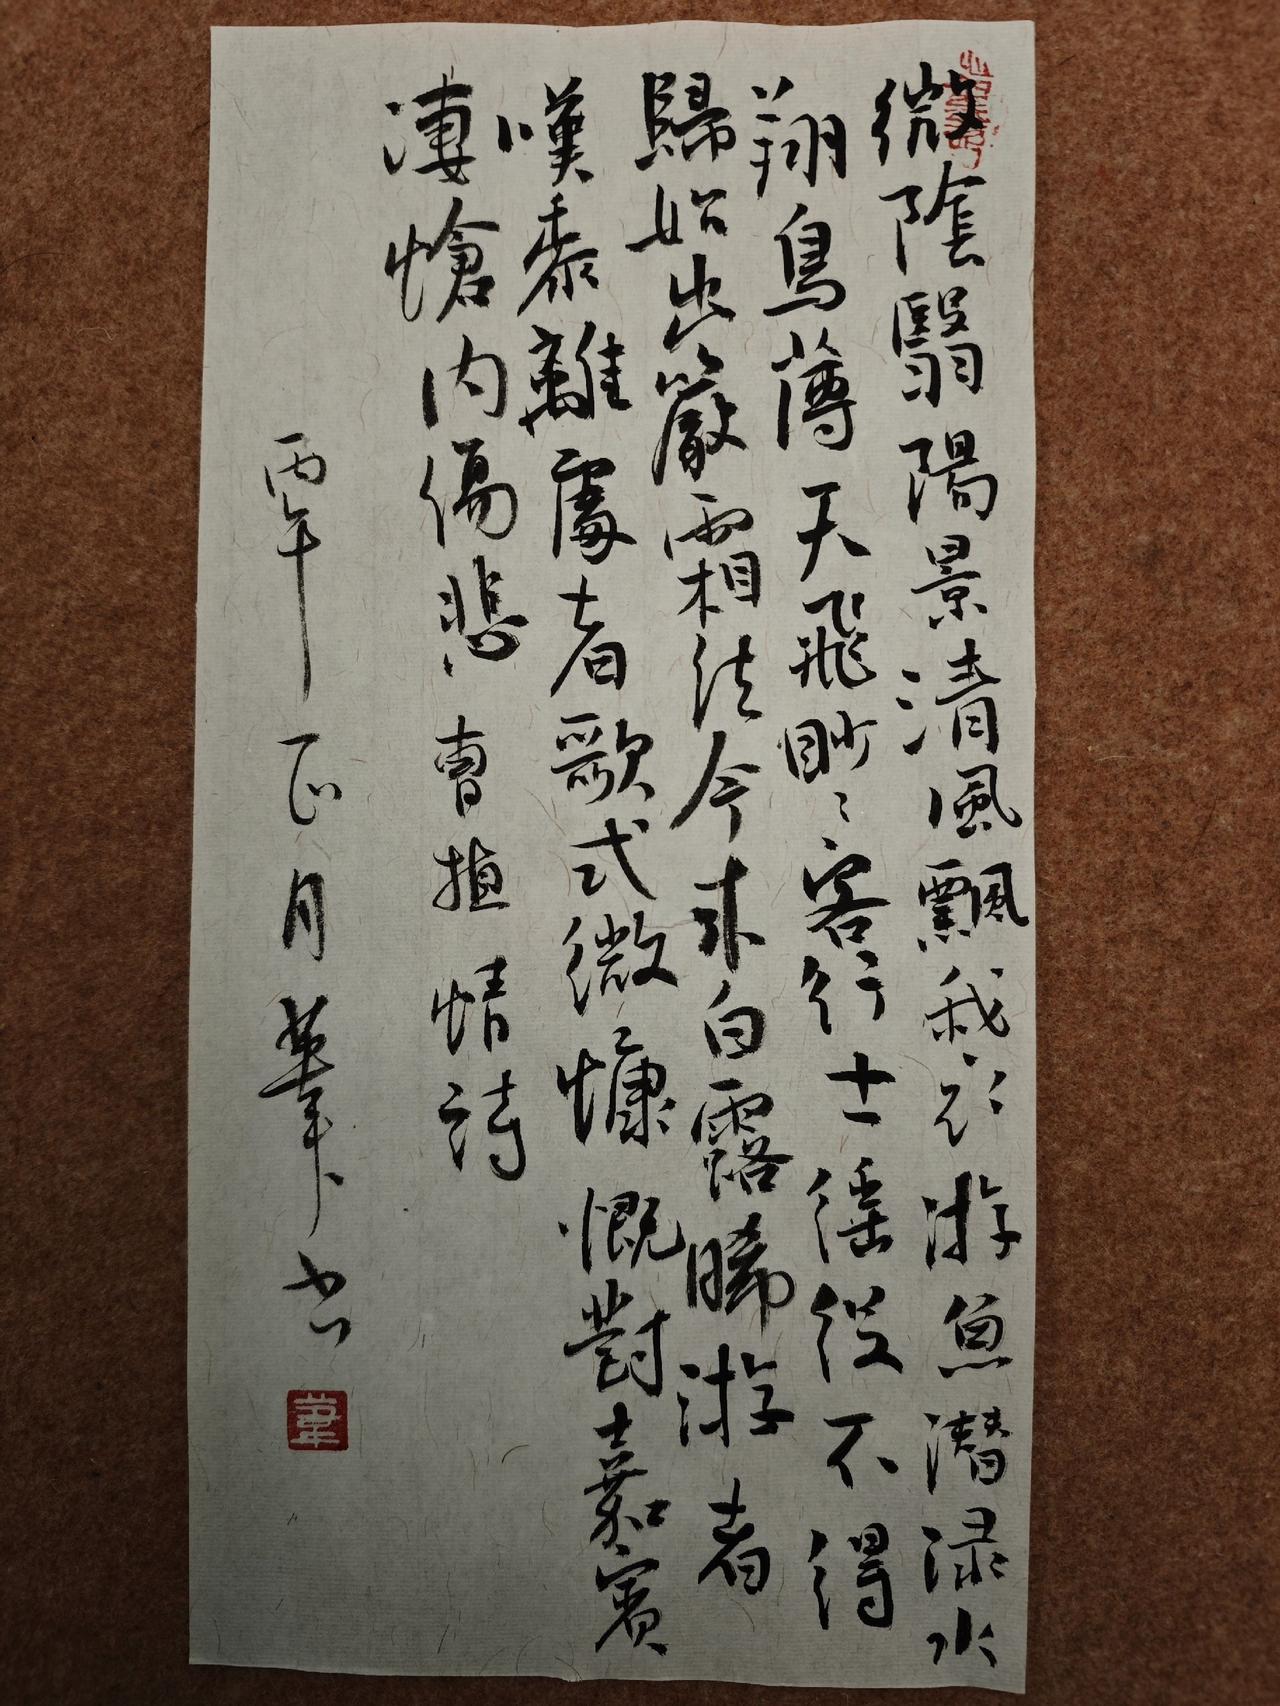 微陰翳陽景清風飄我衣游魚潛渌水
翔鳥薄天飛眇〻客行士徭役不得
歸始出嚴霜結今來白露晞游者
嘆黍離處者歌式微慷慨對嘉賓
淒愴内傷悲 曹植情詩
丙午正月 葦书
葦